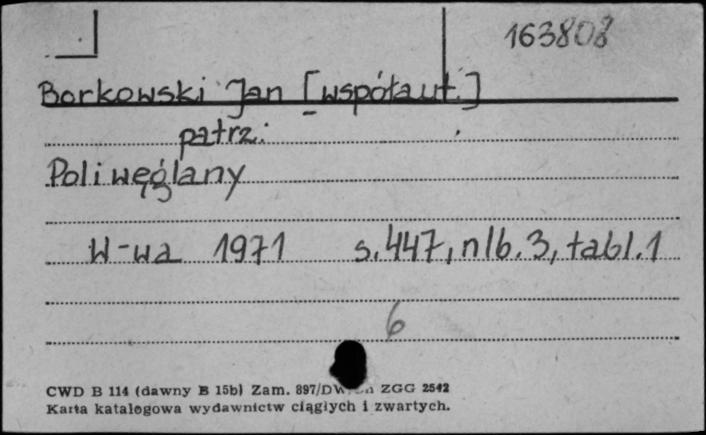 163808
Borkowski Jan [współaut.]
patrz:
Poliwęglany
W-wa 1971 s. 447, nlb. 3, tabl. 1
6
CWD B 114 (dawny B 15b) Zam. 897/DW ZGG 2542
Karta katalogowa wydawnictw ciągłych i zwartych.